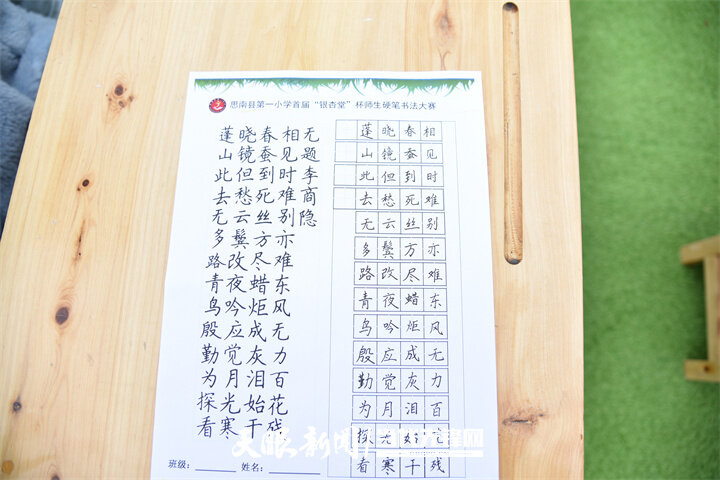 思南县第一小学首届“银杏堂”杯师生硬笔书法大赛
无题李商隐
相见时难别亦难东风无力百花残
春蚕到死丝方尽蜡炬成灰泪始干
晓镜但愁云鬓改夜吟应觉月光寒
蓬山此去无多路青鸟殷勤为探看
相见时难别亦难东风无力百花残
春蚕到死丝方尽蜡炬成灰泪始干
晓镜但愁云鬓改夜吟应觉月光寒
蓬山此去无多路青鸟殷勤为探看
班级：
姓名：
天眼新闻